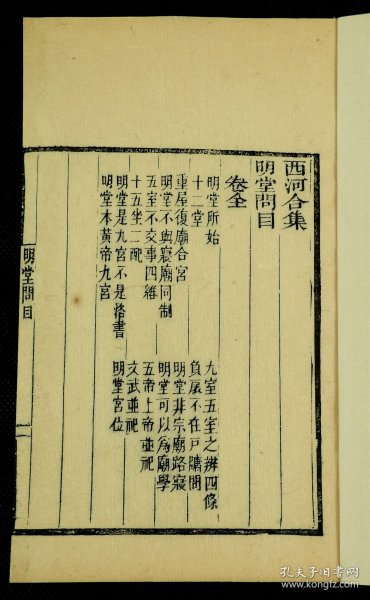 西河合集
明堂問目
卷全
明堂所始
九室五室之辨四條
十二堂
負扆不在戶牖間
重屋復廟合宮
明堂非宗廟路寢
明堂不與寢廟同制
明堂可以為廟學
五室不交事四維
五帝上帝並祀
十五坐二配
文武並祀
明堂是九宮不是洛書
明堂宮位
明堂本黃帝九宮
明堂問目
一
孔夫子旧书网
kongfz.com